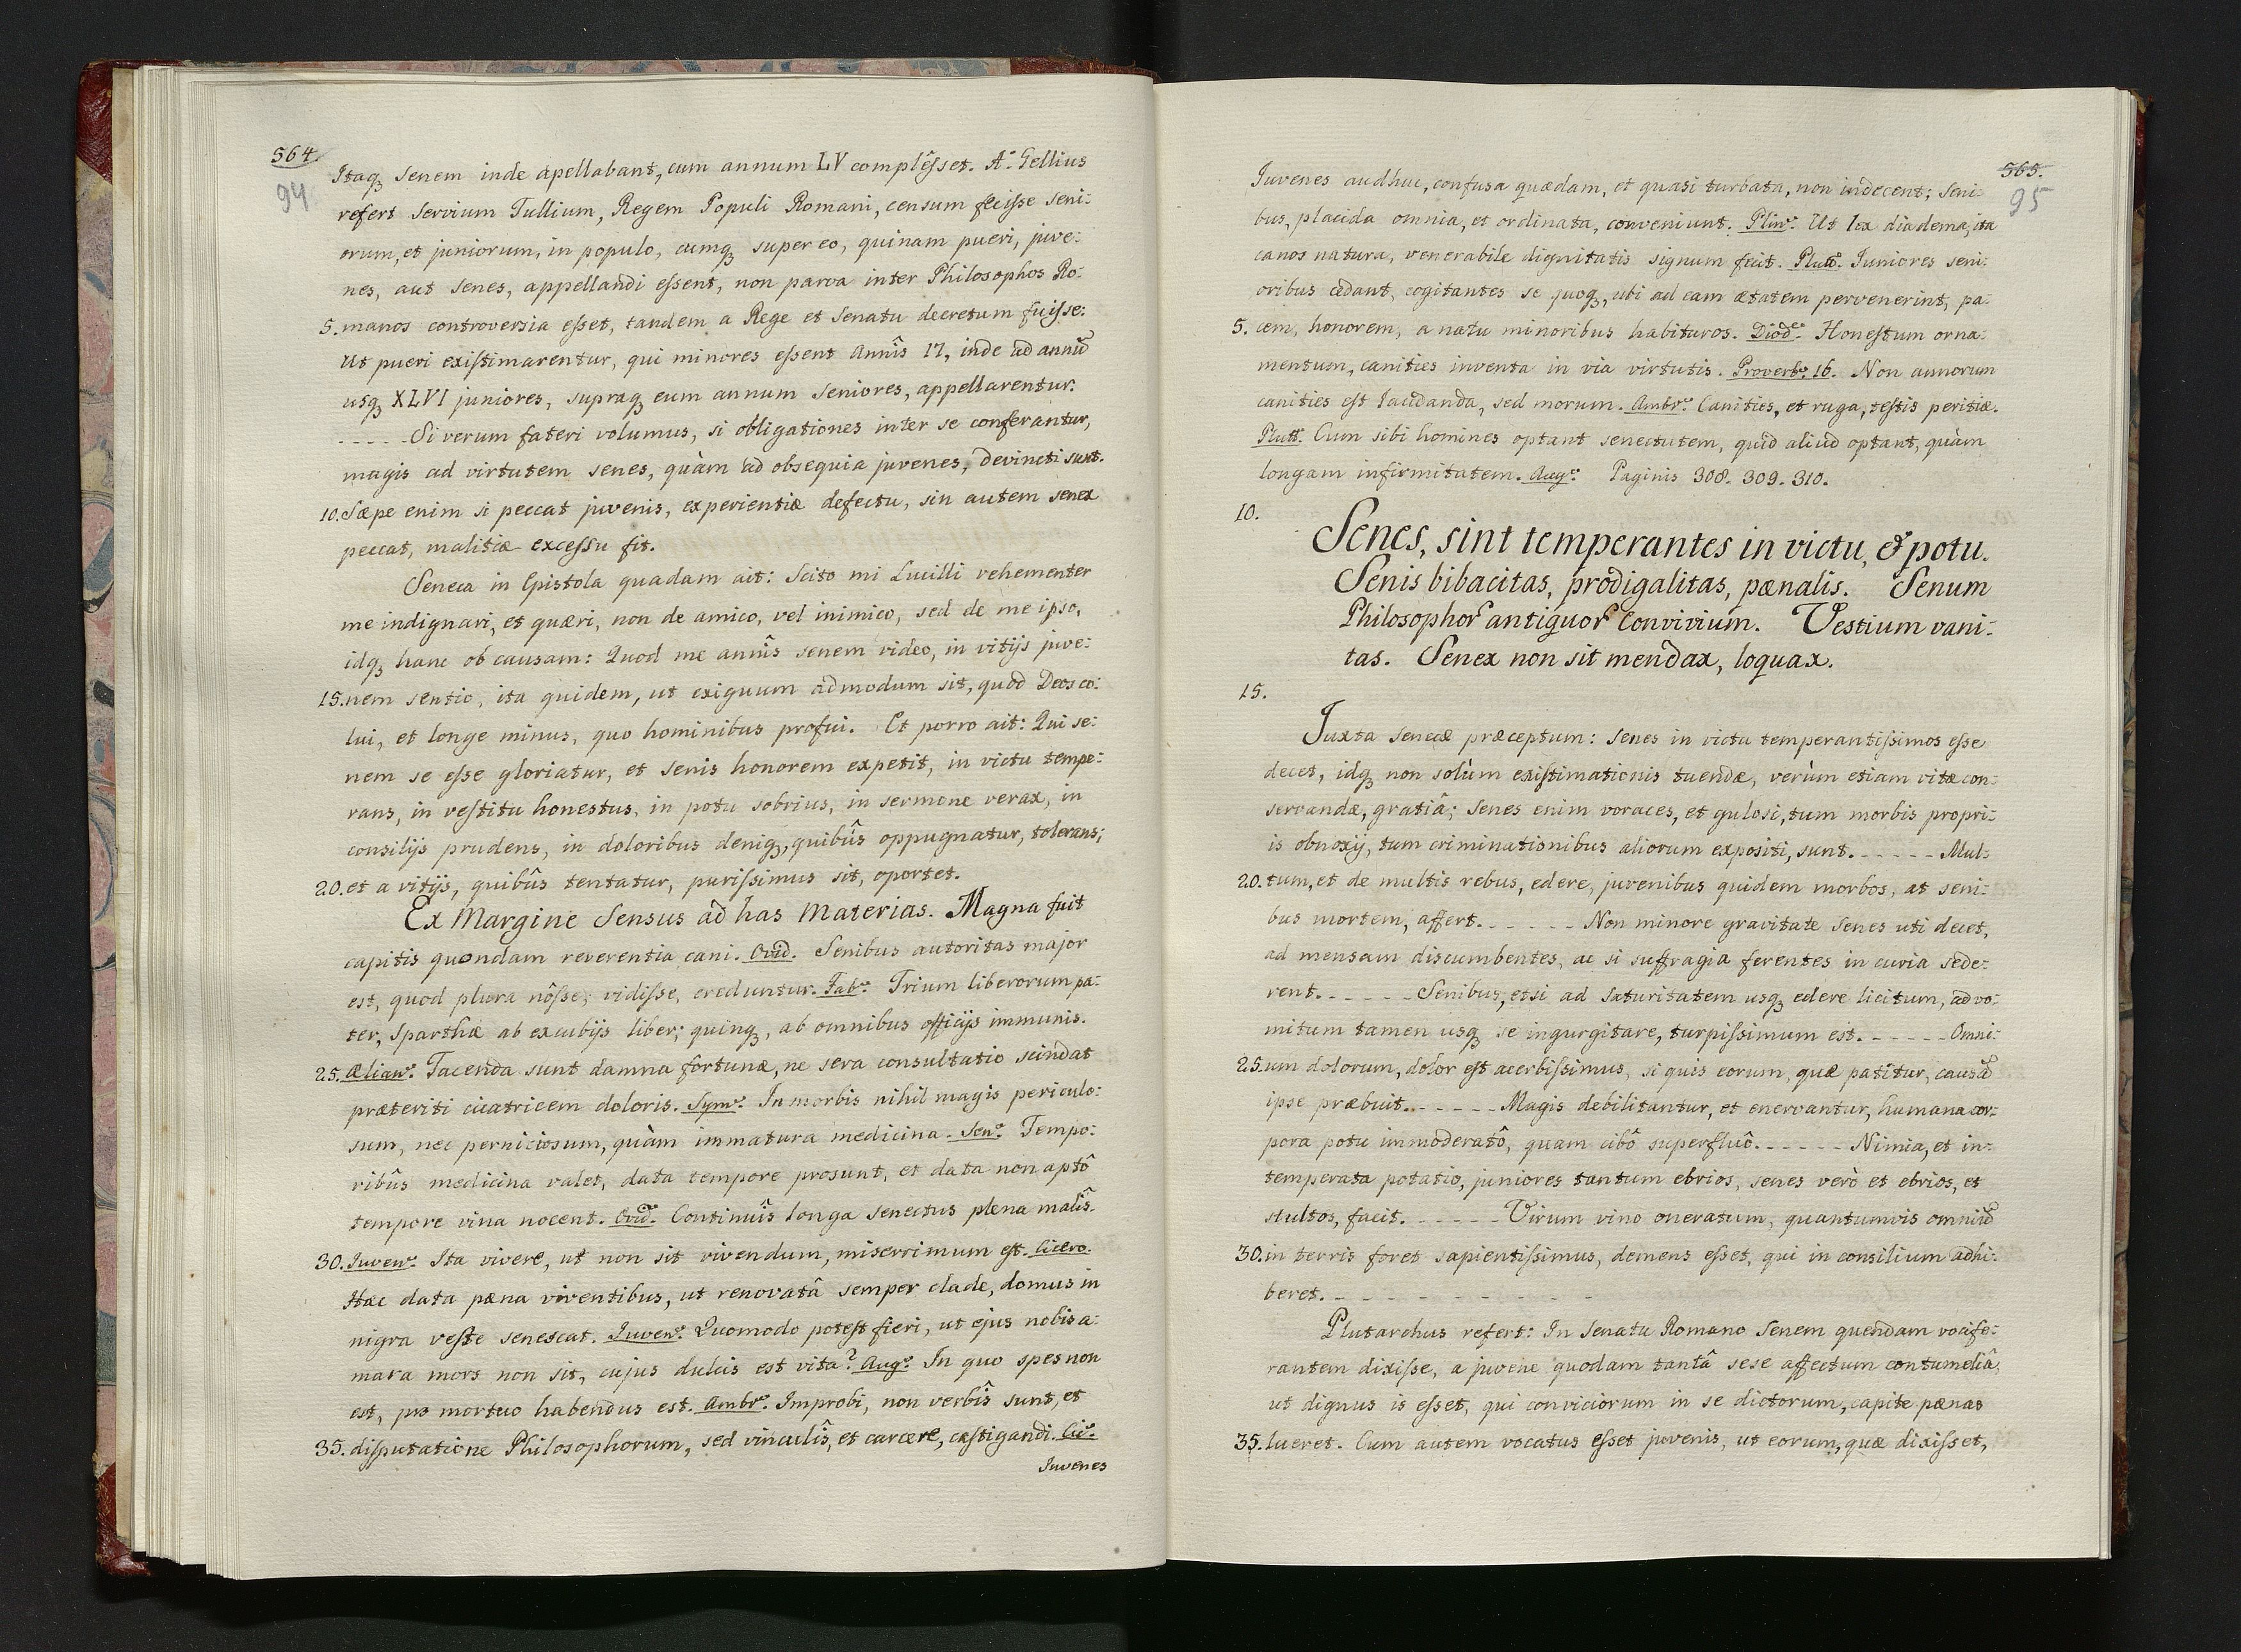 564.
94
Itaq. Senem inde apellabant, cum annum LV complêsset. A. Gellius
refert Servium Tullium, Regem Populi Romani, censum fecisse seni:
orum, et juniorum, in populo, cumq. super eo, quinam pueri, juve:
nes, aut Senes, appellandi essent, non parva inter Philosophos Ro:
5. manos controversia esset, tandem a Rege et Senatu decretum fuisse:
Ut pueri existimarentur, qui minores essent Annîs 17, inde ad annũ
usq. XLVI juniores, supraq. eum annum Seniores, appellarentur.
- - - - - Si verum fateri volumus, si obligationes inter se conferantur,
magis ad virtutem senes, quàm ad obsequia juvenes, devincti sunt.
10. Sæpe enim si peccat juvenis, experientiæ defectu, sin autem senex
peccat, malitiæ excessu fit.
Seneca in Epistola quadam ait: Scito mi Lucilli vehementer
me indignari, et quæri, non de amico, vel inimico, sed de me ipso,
idq. hanc ob causam: Quod me annîs senem video, in vitijs juve:
15. nem sentio, ita quidem, ut exiguum admodum sit, quod Deos co:
lui, et longe minus, quo hominibus profui. Et porro ait: Qui se:
nem se esse gloriatur, et Senis honorem expetit, in victu tempe:
rans, in vestitu honestus, in potu sobrius, in sermone verax, in
consilijs prudens, in doloribus deniq., quibûs oppugnatur, tolerans;
20. et a vitijs, quibûs tentatur, purissimus sit, oportet.
Ex Margine Sensus ad has Materias. Magna fuit
capitis quondam reverentia cani. Ovid. Senibus autoritas major
est, quod plura nôsse, vidisse, creduntur. Fab. Trium liberorum pa:
ter, Sparthæ ab excubijs liber; quinq., ab omnibus officijs immunis.
25. Ælian. Tacenda sunt damna fortunæ, ne sera consultatio scindat
præteriti cicatricem doloris. Sym. In morbis nihil magis periculo:
sum, nec perniciosum, quàm immatura medicina. Sen. Tempo:
ribûs medicina valet, data tempore prosunt, et data non aptô
tempore vina nocent. Ovid. Continuîs longa senectus plena malîs.
30. Iuven. Ita vivere, ut non sit vivendum, miserrimum est. Cicero.
Hæc data pæna viventibus, ut renovatâ semper clade, domus in
nigra veste senescat. Iuven. Quomodo potest fieri, ut ejus nobis a:
mara mors non sit, cujus dulcis est vita? Aug. In quo spes non
est, pro mortuo habendus est. Ambr. Improbi, non verbîs sunt, et
35. disputatione Philosophorum, sed vinculîs, et carcere, castigandi. Cic.
Iuvenes
565.
95
Iuvenes audhuc, confusa quædam, et quasi turbata, non indecent; Seni:
bus, placida omnia, et ordinata, conveniunt. Plin. Ut lex diadema, ita
canos natura, venerabile dignitatis signum fecit. Plutt. Iuniores seni:
oribus cedant, cogitantes se quoq., ubi ad eam ætatem pervenerint, pa:
5. cem, honorem, a natu minoribus habituros. Diod. Honestum orna:
mentum, canities inventa in via virtutis. Proverb. 16. Non annorum
canities est laudanda, sed morum. Ambr. Canities, et ruga, testis peritiæ.
Plutt. Cum sibi homines optant senectutem, quid aliud optant, quàm
longam infirmitatem. Aug. Paginis 308. 309. 310.
10.
Senes, sint temperantes in victu, & potu.
Senis bibacitas, prodigalitas, pænalis. Senum
Philosophor antiquor Convivium. Vestium vani:
tas. Senex non sit mendax, loquax.
15.
Juxta Senecæ præceptum: Senes in victu temperantissimos esse
decet, idq. non solùm existimationis tuendæ, verùm etiam vitæ con:
servandæ, gratiâ; Senes enim voraces, et gulosi, tum morbis propri:
is obnoxij, tum criminationibus aliorum expositi, sunt. - - - - - Mul:
20. tum, et de multis rebus, edere, juvenibus quidem morbos, at seni:
bus mortem, affert. - - - - - Non minore gravitate Senes uti decet,
ad mensam discumbentes, ac si suffragia ferentes in curia sede:
rent. - - - - - Senibus, etsi ad saturitatem usq. edere licitum, ad vo:
mitum tamen usq. se ingurgitare, turpissimum est. - - - - - Omni:
25. um dolorum, dolor est acerbissimus, si quis eorum, quæ patitur, causã
ipse præbuit. - - - - - Magis debilitantur, et enervantur, humana cor:
pora potu immoderatô, quam cibô superfluô. - - - - - Nimia, et in:
temperata potatio, juniores tantum ebrios, senes verò et ebrios, et
stultos, facit. - - - - - Virum vino oneratum, quantumvis omniũ
30. in terris foret sapientissimus, demens esset, qui in consilium adhi:
beret. - - - - - - - - -
Plutarchus refert: In Senatu Romano Senem quendam vocife:
rantem dixisse, a juvene quodam tantâ sese affectum contumeliâ,
ut dignus is esset, qui conviciorum in se dictorum, capite pænas
35. lueret. Cum autem vocatus esset juvenis, ut eorum, quæ dixisset,